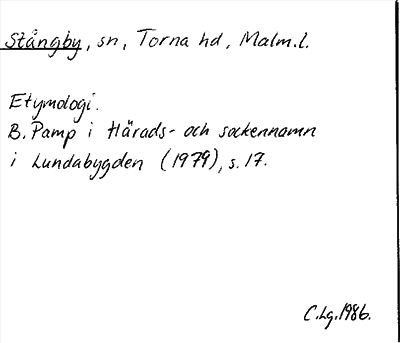 Stångby, sn, Torna hd, Malm.l.
Etymologi.
B. Pamp i Härads- och sockennamn
i Lundabygden (1979), s. 17.
C.Lg.1986.